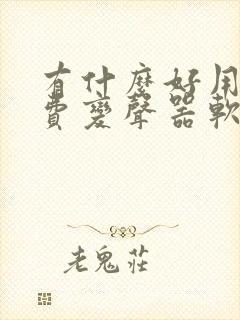 有什麼好用
費變聲器軟
老鬼莊